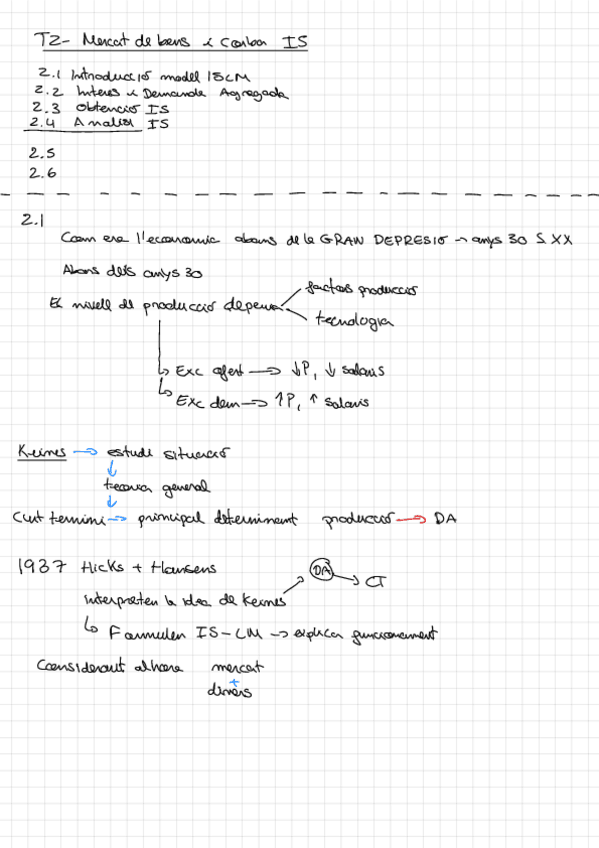 T2- Mercat de bens i Corba IS
2.1 Introducció model ISLM
2.2 Interes i Demanda Agregada
2.3 Obtenció IS
2.4 Analisi IS
2.5
2.6
2.1
Com era l'economia abans de la GRAN DEPRESIO → anys 30 S.XX
Abans dels anys 30
factors produccio
El nivell de produccio depenia
tecnologia
↳ Exc ofert → ↓P, ↓ salaris
↳ Exc dem → ↑P, ↑ salaris
Keines → estudi situacio
↓
teoria general
↓
Curt termini → principal determinant produccio → DA
1937 Hicks + Hansens
DA → CT
interpreten la idea de Keines
↳ Formulen IS-LM → explica funcionament
Considerant alhora mercat
+
diners